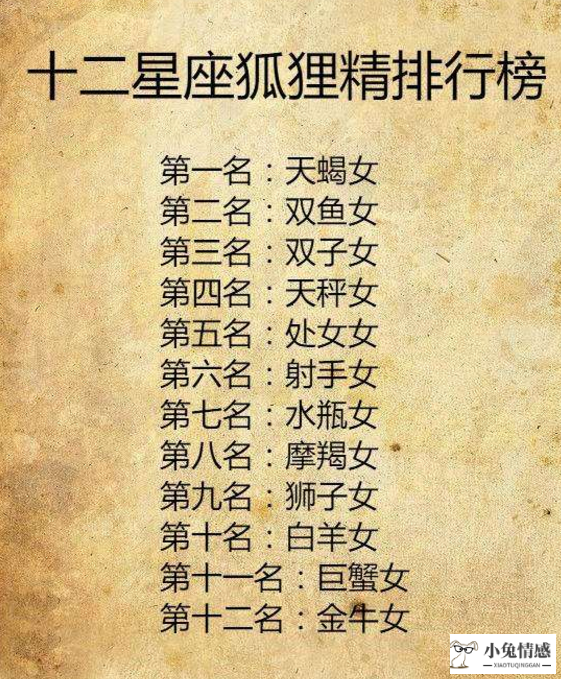 十二星座狐狸精排行榜
第一名：天蝎女
第二名：双鱼女
第三名：双子女
第四名：天秤女
第五名：处女女
第六名：射手女
第七名：水瓶女
第八名：摩羯女
第九名：狮子女
第十名：白羊女
第十一名：巨蟹女
第十二名：金牛女
小兔情感
XIAOTUQINGGAN